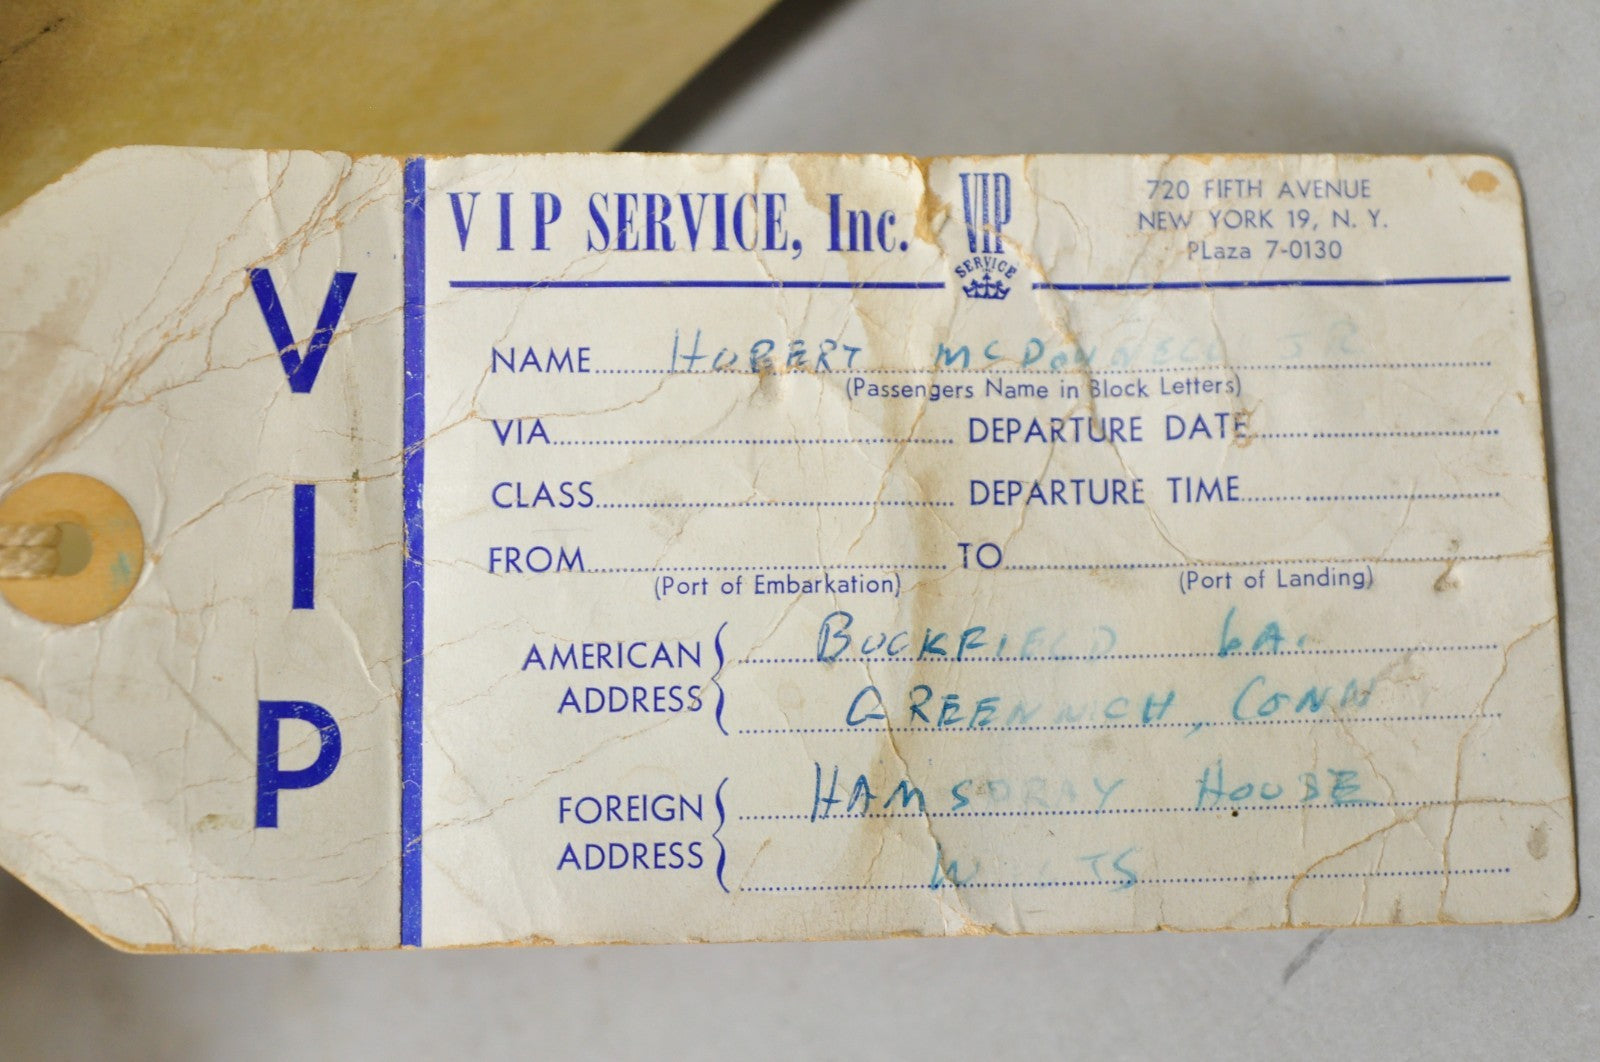 V I P
VIP SERVICE, Inc.
VIP
SERVICE
720 FIFTH AVENUE
NEW YORK 19, N. Y.
PLaza 7-0130
NAME HUBERT MCDONNELL JR
(Passengers Name in Block Letters)
VIA DEPARTURE DATE
CLASS DEPARTURE TIME
FROM TO
(Port of Embarkation) (Port of Landing)
AMERICAN ADDRESS BUCKFIELD LA.
GREENWICH, CONN
FOREIGN ADDRESS HAMSPRAY HOUSE